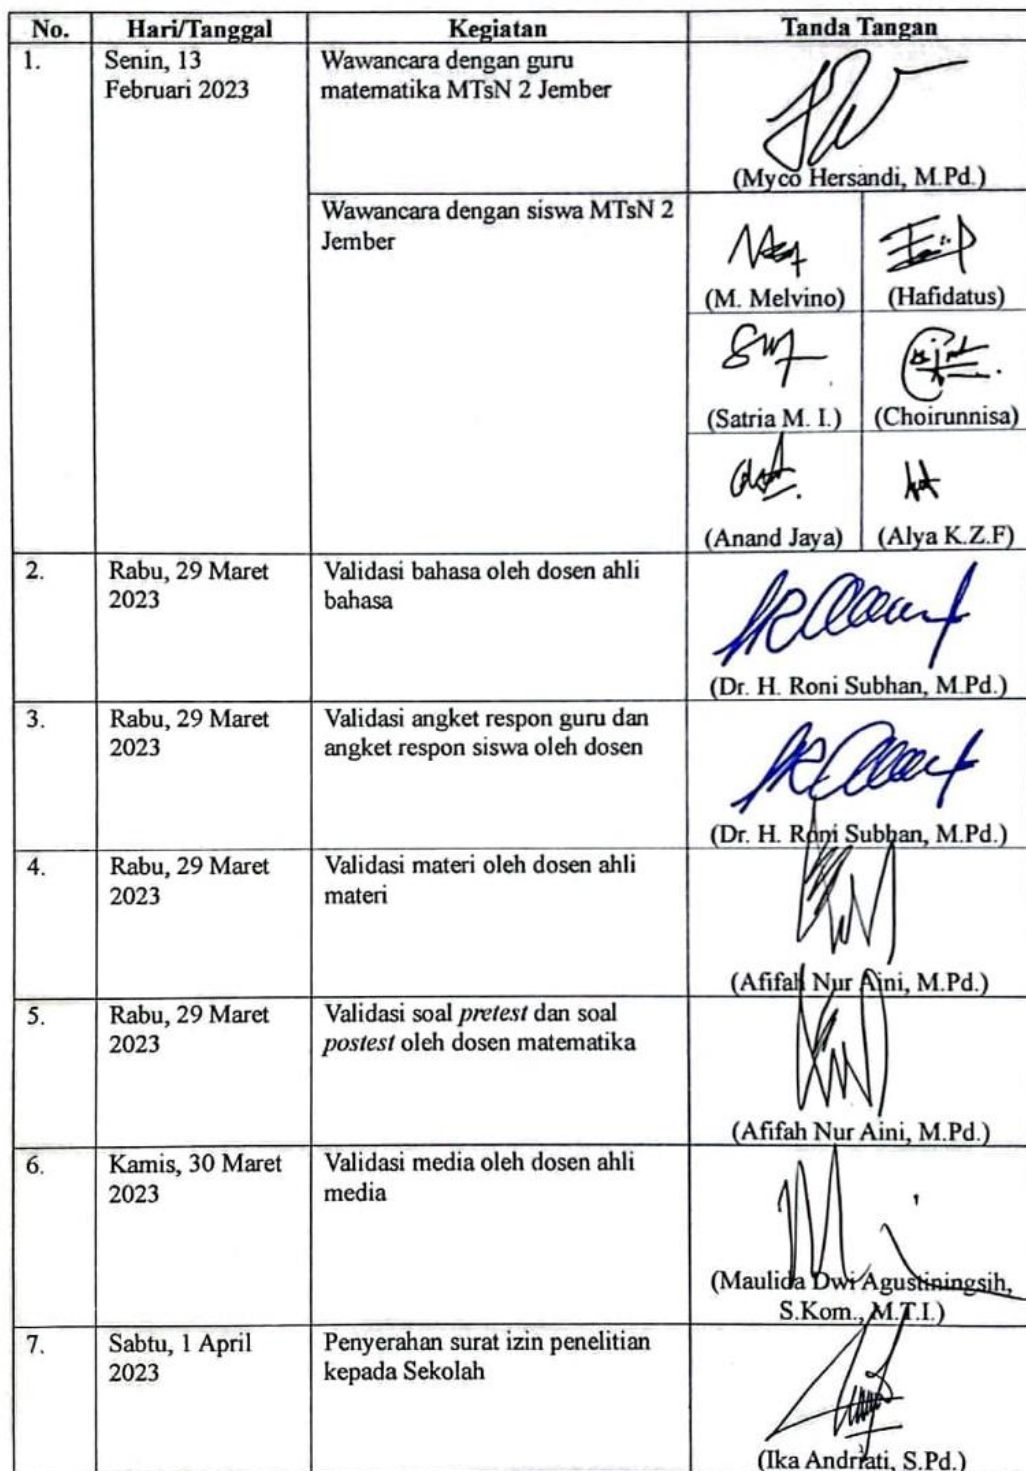 No. Hari/Tanggal Kegiatan Tanda Tangan
1. Senin, 13 Wawancara dengan guru
Februari 2023 matematika MTsN 2 Jember
(Myco Hersandi, M.Pd.)
Wawancara dengan siswa MTsN 2
Jember
(M. Melvino) (Hafidatus)
(Satria M. I.) (Choirunnisa)
(Anand Jaya) (Alya K.Z.F)
2. Rabu, 29 Maret Validasi bahasa oleh dosen ahli
2023 bahasa
(Dr. H. Roni Subhan, M.Pd.)
3. Rabu, 29 Maret Validasi angket respon guru dan
2023 angket respon siswa oleh dosen
(Dr. H. Roni Subhan, M.Pd.)
4. Rabu, 29 Maret Validasi materi oleh dosen ahli
2023 materi
(Afifah Nur Aini, M.Pd.)
5. Rabu, 29 Maret Validasi soal pretest dan soal
2023 postest oleh dosen matematika
(Afifah Nur Aini, M.Pd.)
6. Kamis, 30 Maret Validasi media oleh dosen ahli
2023 media
(Maulida Dwi Agustiningsih,
S.Kom., M.T.I.)
7. Sabtu, 1 April Penyerahan surat izin penelitian
2023 kepada Sekolah
(Ika Andriati, S.Pd.)